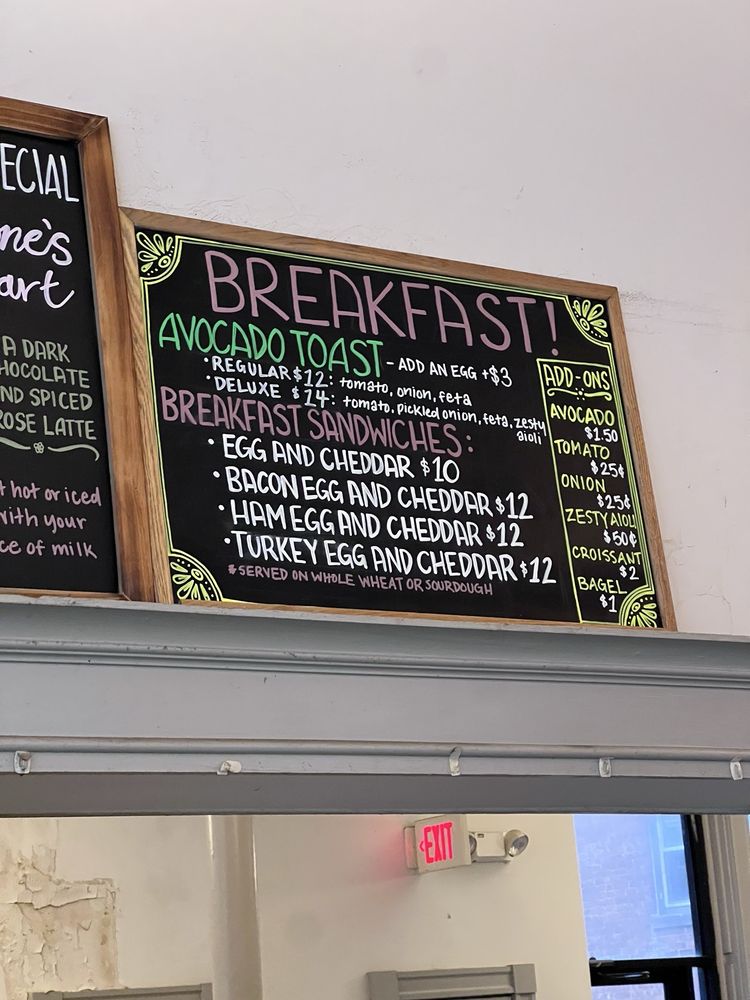 ECIAL
ne's
art
A DARK
HOCOLATE
ND SPICED
ROSE LATTE
t hot or iced
with your
ce of milk
BREAKFAST!
AVOCADO TOAST - ADD AN EGG +$3
• REGULAR $12: tomato, onion, feta
• DELUXE $14: tomato, pickled onion, feta, zesty
aioli
BREAKFAST SANDWICHES:
• EGG AND CHEDDAR $10
• BACON EGG AND CHEDDAR $12
• HAM EGG AND CHEDDAR $12
• TURKEY EGG AND CHEDDAR $12
*SERVED ON WHOLE WHEAT OR SOURDOUGH
ADD-ONS
AVOCADO
$1.50
TOMATO
$25¢
ONION
$25¢
ZESTY AIOLI
$50¢
CROISSANT
$2
BAGEL
$1
EXIT